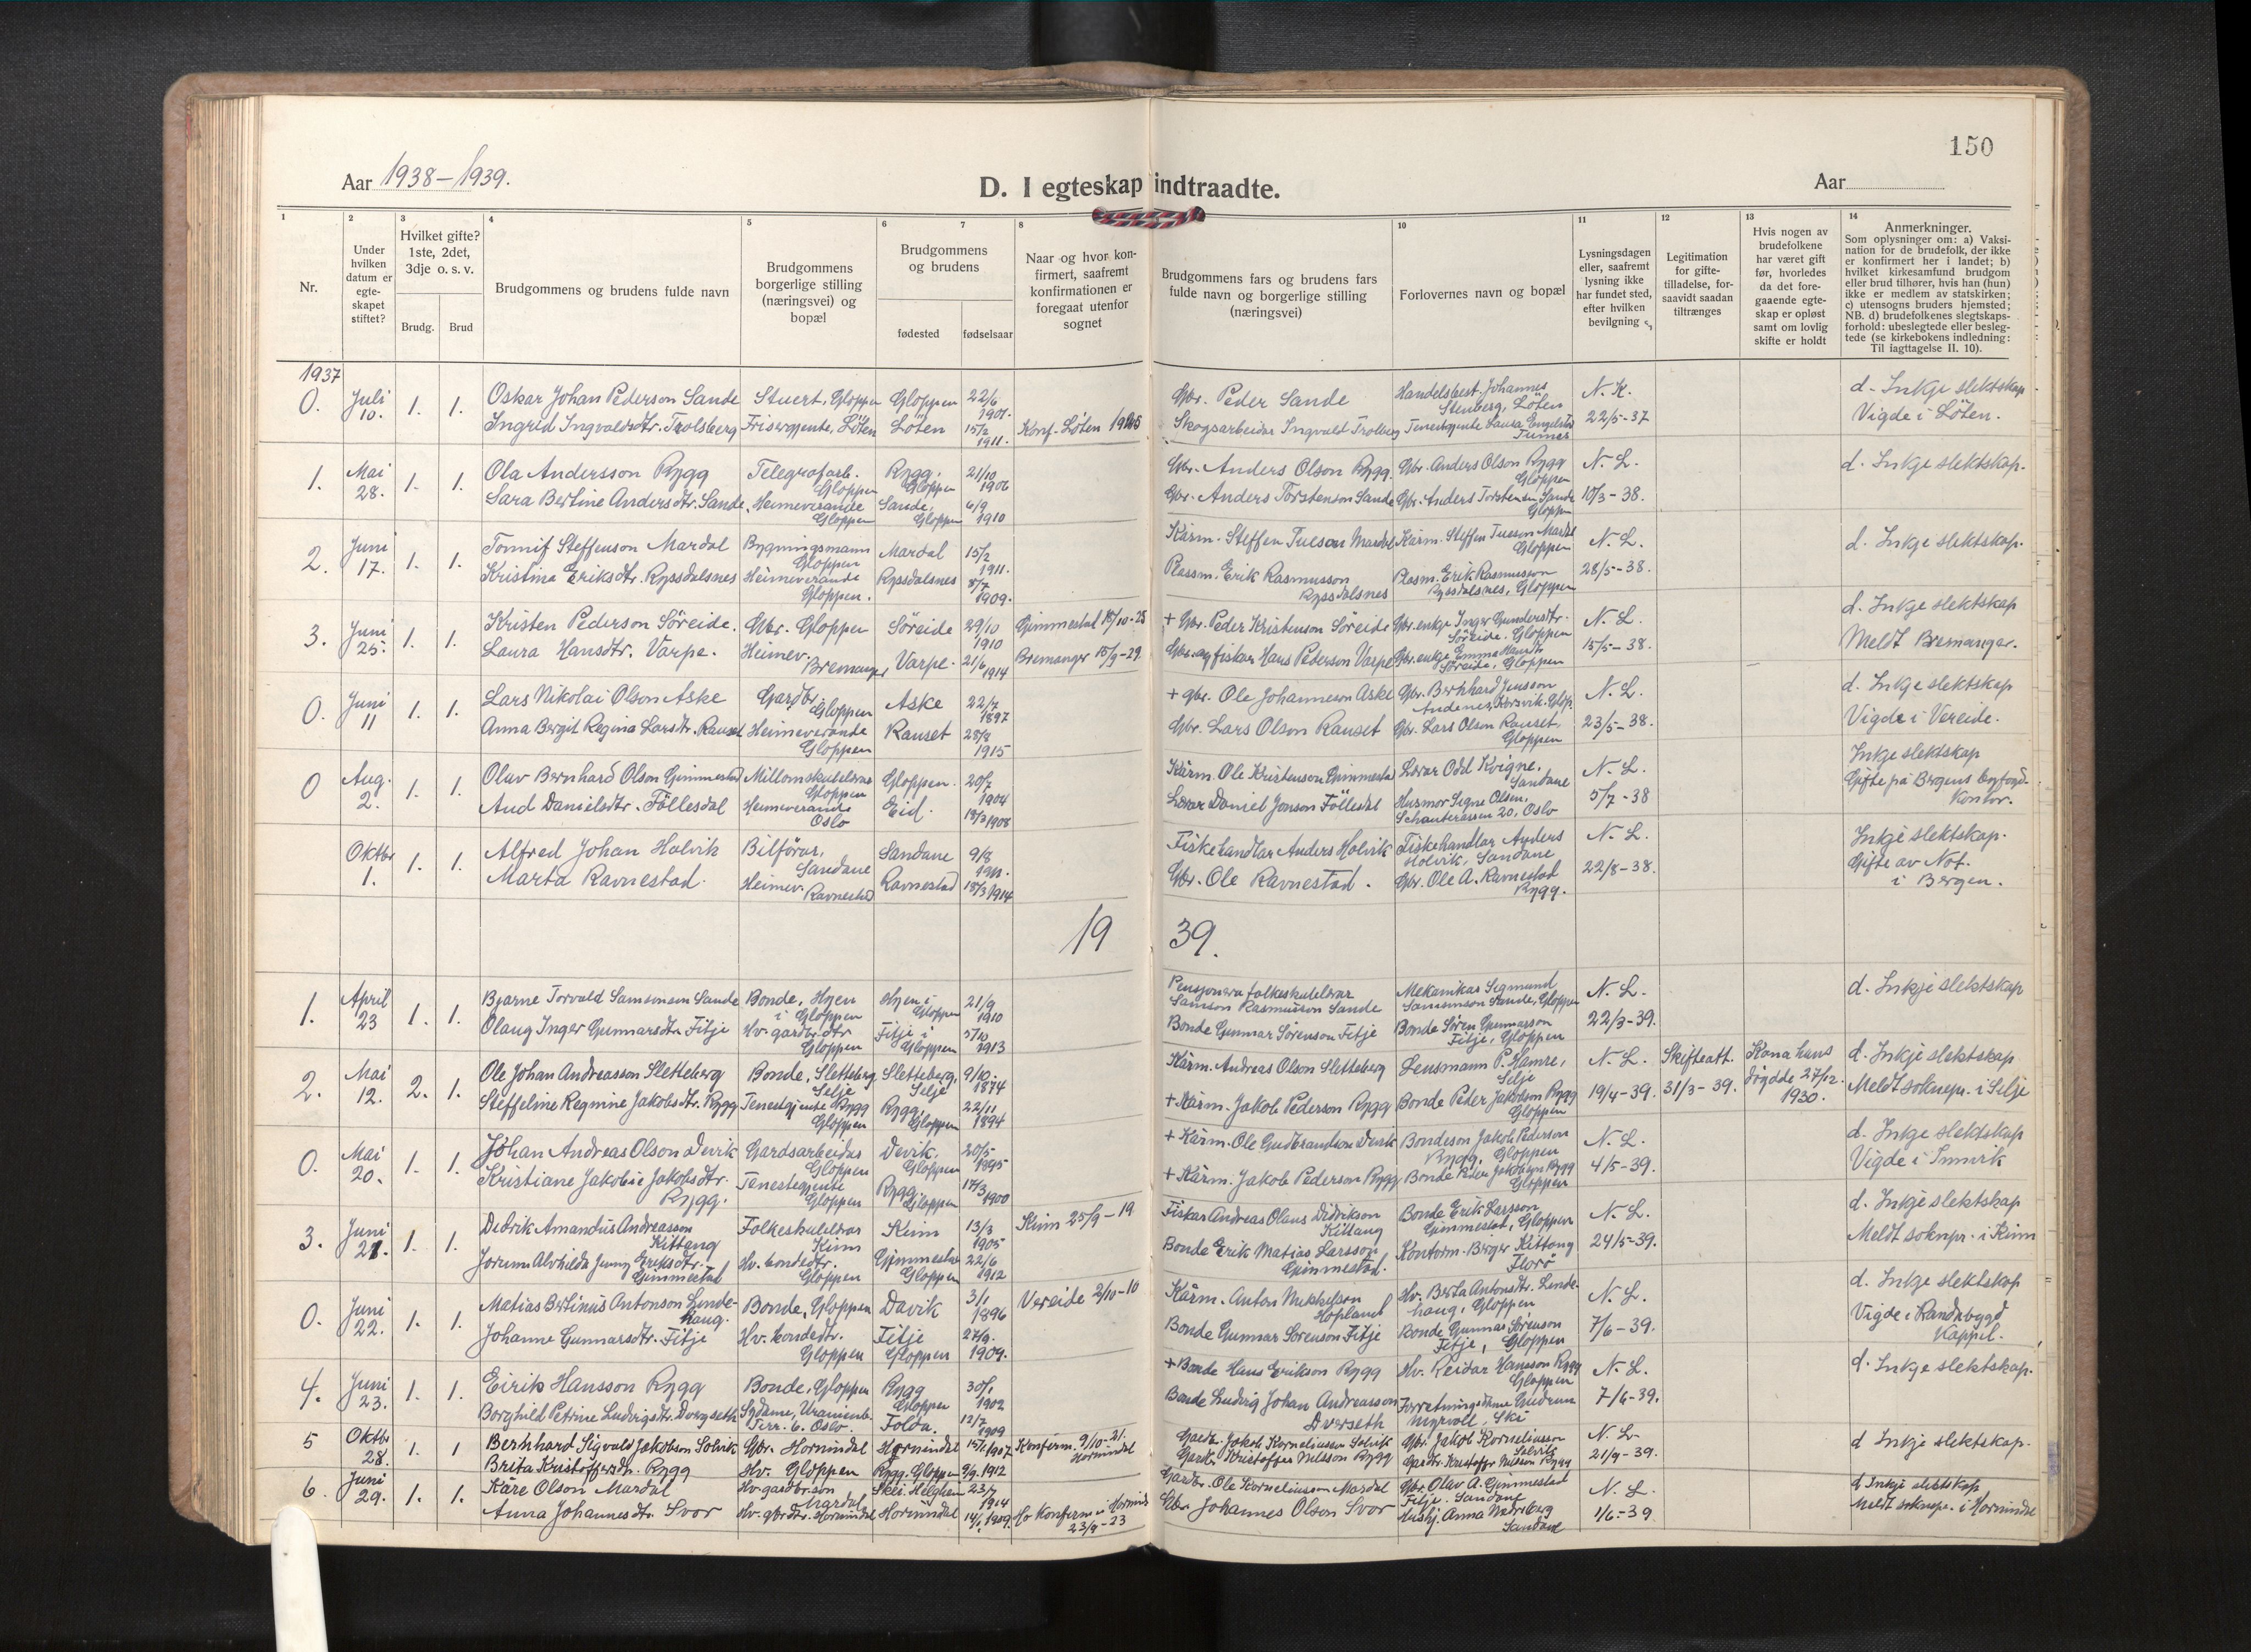 150
Aar 1938-1939.
D. I egteskap indtraadte.
Aar
1 2 3 4 5 6 7 8 10 11 12 13 14
Nr.
Under hvilken datum er egte-skapet stiftet?
Hvilket gifte? 1ste, 2det, 3dje o. s. v.
Brudg. Brud
Brudgommens og brudens fulde navn
Brudgommens borgerlige stilling (næringsvei) og bopæl
Brudgommens og brudens
fødested fødselsaar
Naar og hvor kon-firmert, saafremt konfirmationen er foregaat utenfor sognet
Brudgommens fars og brudens fars fulde navn og borgerlige stilling (næringsvei)
Forlovernes navn og bopæl
Lysningsdagen eller, saafremt lysning ikke har fundet sted, efter hvilken bevilgning
Legitimation for gifte-tilladelse, for-saavidt saadan tiltrænges
Hvis nogen av brudefolkene har været gift før, hvorledes da det fore-gaaende egte-skap er opløst samt om lovlig skifte er holdt
Anmerkninger.
Som oplysninger om: a) Vaksi-nation for de brudefolk, der ikke er konfirmert her i landet; b) hvilket kirkesamfund brudgom eller brud tilhører, hvis han (hun) ikke er medlem av statskirken; c) utensogns bruders hjemsted; NB. d) brudefolkenes slegtskaps-forhold: ubeslegtede eller besleg-tede (se kirkebokens indledning: Til iagttagelse II. 10).
1937
0. Juli 10. 1. 1. Oskar Johan Pederson Sande Stuert, Gloppen Gloppen 22/6 1901. Gbr. Peder Sande Handelsbest. Johannes Stenberg, Löten N. K. d. Inkje slektskap
Ingrid Ingvaldsdtr. Trolsberg Frisergjente, Löten Löten 15/2 1911. Konf. Löten Skogsarbeidar Ingvald Trolberg 22/5-37 Vigde i Löten.
1. Mai 28. 1. 1. Ola Andersson Rygg Telegrafarb. Gloppen Rygg, Gloppen 21/10 1906 Gbr. Anders Olson Rygg. Gbr. Anders Olson Rygg Gloppen N. L. d. Inkje slektskap.
Sara Bertine Andersdtr. Sande, Heimeverande Gloppen Sande, Gloppen 6/9 1910 Gbr. Anders Torstenson Sande Gbr. Anders Torstenson Sande Gloppen 10/3-38.
2. Juni 17. 1. 1. Steffenson Mardal Bygningsmann Gloppen Mardal 15/2 1911. Kårm. Steffen Mardal Kårm. Steffen Mardal Gloppen N. L. d. Inkje slektskap.
Kristina Eriksdtr. Ryssdalsnes Heimeverande Gloppen. Ryssdalsnes 8/7 1909. Plassm. Erik Rasmusson Ryssdalsnes Plasm. Erik Rasmusson Ryssdalsnes, Gloppen 28/5-38.
3. Juni 25. 1. 1. Kristen Pederson Söreide. Gbr. Gloppen Söreide 29/10 1910 Gimmestad + Gbr. Peder Kristenson Söreide Gbr. enkje Inger Gundersdtr. Söreide. Gloppen N. L. d. Inkje slektskap
Laura Hansdtr. Varpe. Heimev. Bremanger Varpe. 21/6 1914 Bremanger 15/9-29 Gbr. og fiskar Hans Pederson Varpe Gbr. enkje Emma Söreide, Gloppen 15/5-38. Meldt Bremanger.
0. Juni 11 1. 1. Lars Nikolai Olson Aske Gardbr. Gloppen Aske 22/7 1897 + gbr. Ole Johanneson Aske Gbr. Bernhard Jensson N. L. d. Inkje slektskap
Anna Bergit Regina Larsdtr. Rauset Heimeverande Gloppen Rauset 28/8 1915 Gbr. Lars Olson Rauset Gbr. Lars Olson Rauset. Gloppen 23/5-38. Vigde i Vereide.
0 Aug. 2. 1. 1. Olav Bernhard Olson Gimmestad Millomskulelærar Gloppen Gloppen. 20/7 1904 Kårm. Ole Kristenson Gimmestad Lærar Odd Kvigne. Sandane N. L. Inkje slektskap
Aud Danielsdtr. Föllesdal Heimeverande Oslo Eid. 18/3 1908 Lærar Daniel Jonson Föllesdal Husmor Signe Olsen, 20, Oslo 5/7-38 Gifte på Bergens byfogd-kontor.
Oktbr 1. 1. 1. Alfred Johan Holvik Bilförar, Sandane Sandane 9/8 1911. Fiskehandlar Anders Holvik Fiskehandlar Anders Holvik, Sandane N. L. Inkje slektskap.
Marta Ravnestad. Heimev. Ravnestad Ravnestad 18/3 1914 Gbr. Ole Ravnestad. Gbr. Ole A. Ravnestad Rygg. 22/8-38. Gifte av Not. i Bergen.
19 39.
1. April 23 1. 1. Bjarne Torvald Samsonsen Sande Bonde, Hyen i Gloppen Hyen i Gloppen 21/9 1910 folkeskulelærar Samson Rasmusson Sande Mekanikar Sigmund Samsonson Sande, Gloppen N. L. d. Inkje slektskap
Olaug Inger Gunnarsdtr. Fitje Hv. gardbr.dtr Gloppen Fitje i Gloppen 5/10 1913 Bonde Gunnar Sörenson Fitje Bonde Sören Gunnarson Fitje, Gloppen 22/3-39.
2. Mai 12. 2. 1. Ole Johan Andreasson Sletteberg Bonde, Sletteberg Selje Sletteberg, Selje 9/10. 1874 Kårm. Andreas Olson Sletteberg Lensmann P. Hamre, Selje N. L. Skifteatt. Kona hans d. Inkje slektskap
Steffeline Regnine Jakobsdtr. Rygg Tenestgjente Rygg Gloppen Rygg Gloppen 22/11 1894 + Kårm. Jakob Pederson Rygg Bonde Peder Jakobson Rygg Gloppen 19/4-39. 31/3-39. döydde 27/12. 1930. Meldt soknepr. i Selje
0. Mai 20. 1. 1. Johan Andreas Olson Devik Gardsarbeidar Gloppen Devik, Gloppen 20/5- 1895 + Kårm. Ole Gudbrandson Devik Bondeson Jakob Pederson Rygg, Gloppen N. L. d. Inkje slektskap
Kristiane Jakobie Jakobsdtr. Rygg. Tenestegjente Gloppen Rygg, Gloppen 17/3 1900 + Kårm. Jakob Pederson Rygg Bonde Peder Jakobson Rygg Gloppen 4/5-39. Vigde i Innvik
3. Juni 21. 1. 1. Didrik Amandus Andreasson Kittang Folkeskulelærar Kinn Kinn 13/3 1905 Kinn 25/9-19 Fiskar Andreas Olaus Didrikson Kittang Bonde Erik Larsson Gimmestad, Gloppen N. L. d. Inkje slektskap
Jorunn Alvhilda Jenny Eriksdtr. Gimmestad Hv. bondedtr. Gloppen Gimmestad Gloppen 22/6 1912 Bonde Erik Matias Larsson Gimmestad. Kontorm. Birger Kittang Florö 24/5-39. Meldt soknepr. i Kinn
0. Juni 22. 1. 1. Matias Bertinus Antonson Lunde-haug. Bonde, Gloppen Davik 3/1 1896 Vereide 2/10-10 Kårm. Anton Mikkelson Hopland Hv. Berta Antonsdtr. Lunde-haug, Gloppen N. L. d. Inkje slektskap
Johanne Gunnarsdtr. Fitje Hv. bondedtr. Gloppen Fitje Gloppen 27/9. 1909. Bonde Gunnar Sörenson Fitje Bonde Gunnar Sörenson Fitje, Gloppen 7/6-39. Vigde i Randabygd kappel.
4. Juni 23. 1. 1. Eirik Hansson Rygg Bonde, Gloppen Rygg Gloppen 30/1 1902 + Bonde Hans Erikson Rygg Hv. Reidar Hansson Rygg Gloppen N. L. d. Inkje slektskap.
Borghild Petrine Ludvigsdtr. Dvergseth Sydame, Uranienb. Terr. 6. Oslo. Folda. 12/7 1909 Bonde Ludvig Johan Andreasson Dverseth Forretningsdame Gudrun Myrvoll, Ski 7/6-39.
5 Oktbr 28. 1. 1 Bernhard Sigvald Jakobson Solvik Gbr. Hornindal Hornindal 1907 Konfirm. 9/10-21. Hornindal Gardb. Jakob Korneliusson Solvik Gbr. Jakob Korneliusson Solvik N. L. d Inkje slektskap.
Brita Kristoffersdtr. Rygg Hv. Gloppen Rygg. Gloppen 9/9. 1912 Gardb. Kristoffer Nilsson Rygg Gardbr. Kristoffer Nilsson Rygg 21/9-39.
6. Juni 29. 1. 1. Kåre Olson Mardal Hv. gardbr.son Mardal 23/7 1914 Gardbr. Ole Korneliusson Mardal Gbr. Olav A. Gimmestad Fitje. Sandane N. L. d Inkje slektskap
Anna Johannesdtr. Svor Hv. gbrdtr. Hornindal Hornindal 14/1 1909. Konfirm. i Hornind 23/9-23 Gbr. Johannes Olson Svor Hushj. Anna Sandane 1/6-39 Meldt soknepr. i Hornindal